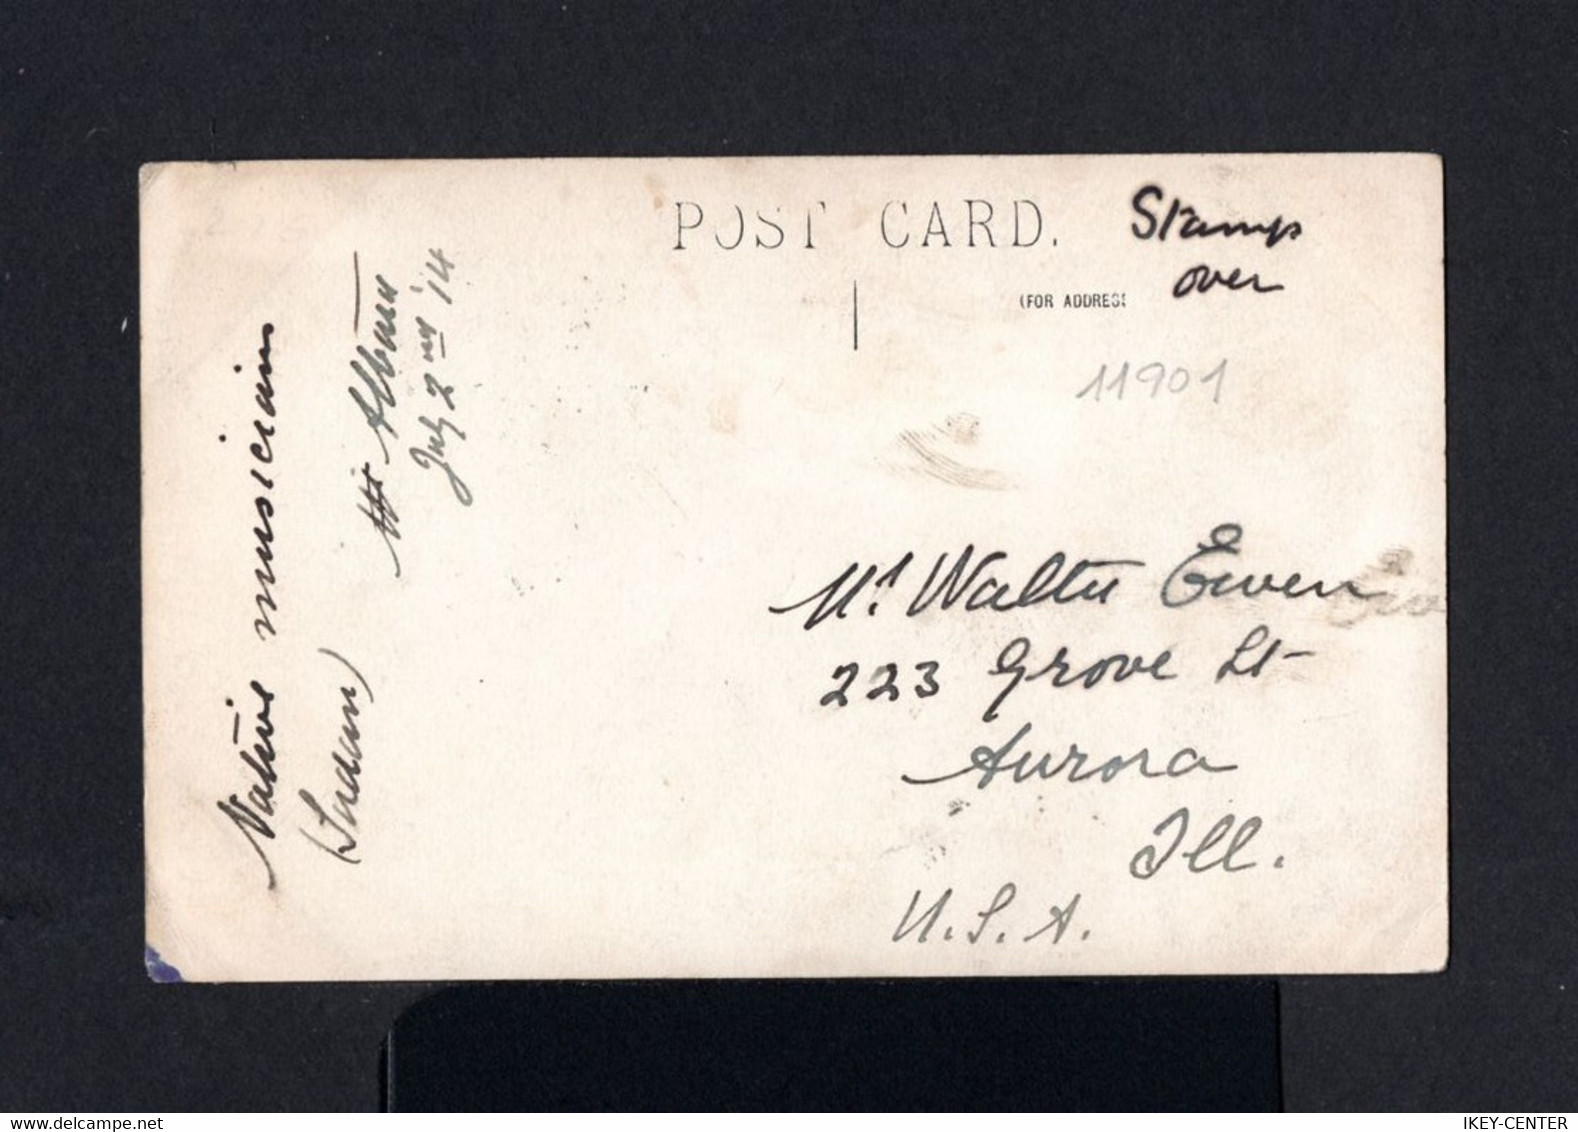 POST CARD.
(FOR ADDRES
Stamp
over
11901
Native musician
(Sudan)
July 2nd '14
Mr. Walter Ewen
223 Grove St
Aurora
Ill.
U.S.A.
delcampe.net
IKEY-CENTER